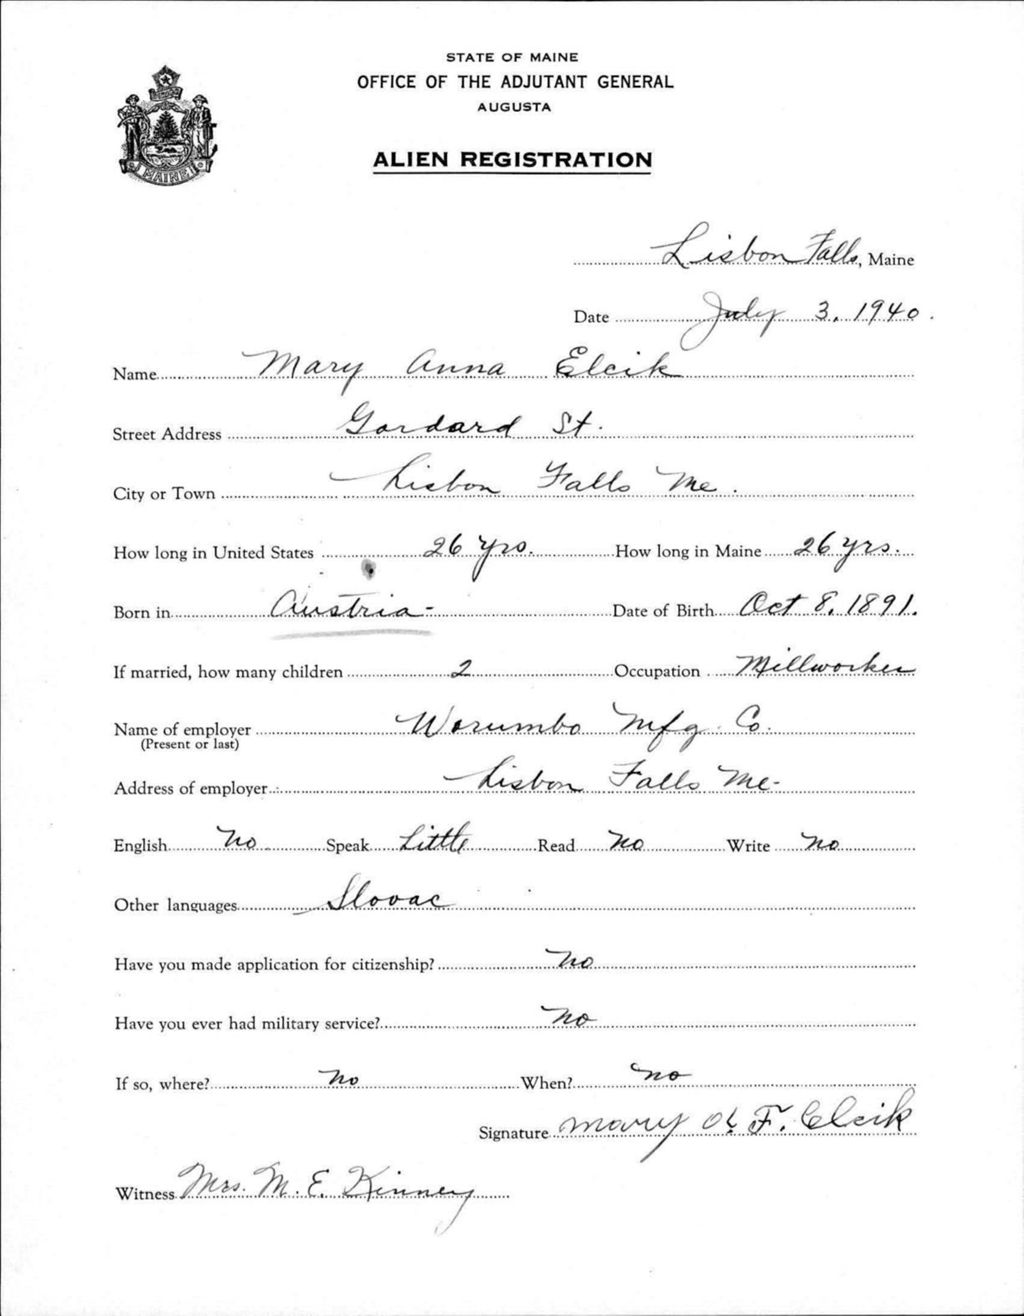 STATE OF MAINE
OFFICE OF THE ADJUTANT GENERAL
AUGUSTA
ALIEN REGISTRATION
MAINE
Lisbon Falls, Maine
Date July 3, 1940.
Name Mary Anna Elcik
Street Address Gordard St.
City or Town Lisbon Falls Me.
How long in United States 26 yrs. How long in Maine 26 yrs.
Born in Austria- Date of Birth Oct 8, 1891.
If married, how many children 2 Occupation Millworker
Name of employer Worumbo Mfg. Co.
(Present or last)
Address of employer Lisbon Falls Me-
English No Speak Little Read No Write No
Other languages Slovac
Have you made application for citizenship? No
Have you ever had military service? No
If so, where? No When? No
Signature Mary F. Elcik
Witness Mrs. M. E. Kinney